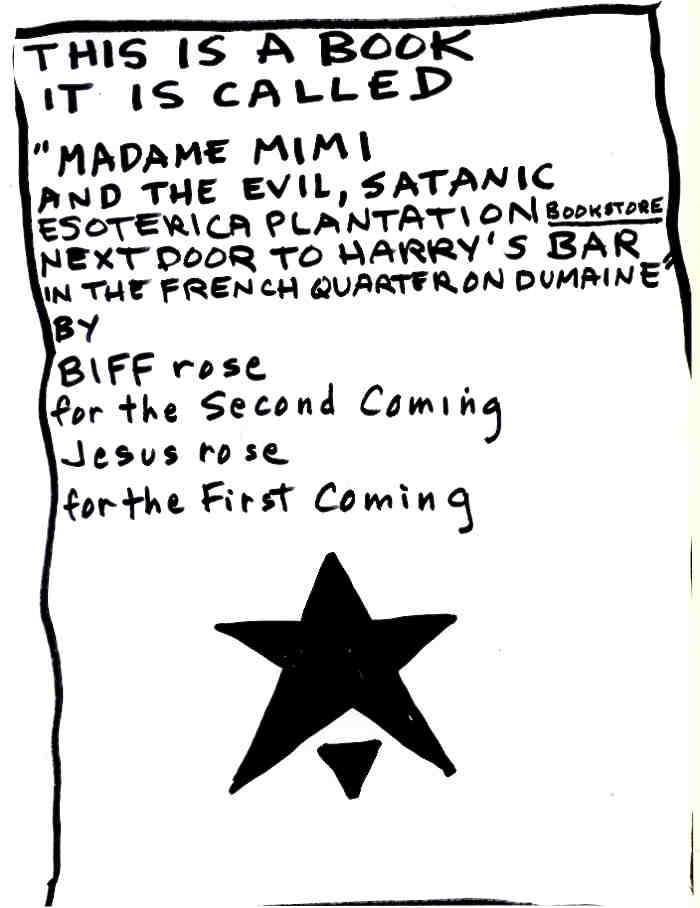 THIS IS A BOOK
IT IS CALLED
"MADAME MIMI
AND THE EVIL, SATANIC
ESOTERICA PLANTATION BOOKSTORE
NEXT DOOR TO HARRY'S BAR
IN THE FRENCH QUARTER ON DUMAINE"
BY
BIFF rose
for the Second Coming
Jesus rose
for the First Coming